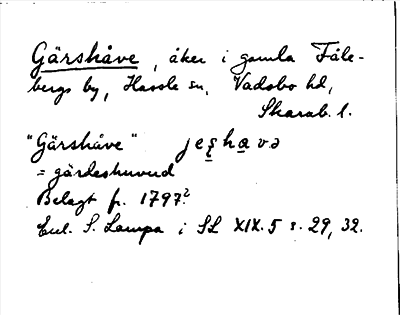 Gärshåve, åker i gamla Fåle-
bergs by, Hassle sn, Vadsbo hd,
Skarab. l.
"Gärshåve" jeʂhavə
= gärdeshuvud
Belagt fr. 1797?
Enl. S. Lampa i SL XIX.5 s. 29, 32.